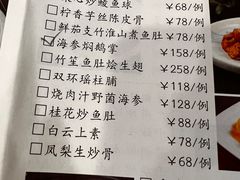 炒鲮鱼球 ¥68/例
柠香芋丝陈皮骨 ¥78/例
鲜茄支竹淮山煮鱼肚 ¥78/例
海参焖鹅掌 ¥158/例
竹笙鱼肚烩生翅 ¥258/例
双环瑶柱脯 ¥118/例
烧肉汁野菌海参 ¥128/例
桂花炒鱼肚 ¥88/例
白云上素 ¥78/例
凤梨生炒骨 ¥68/例